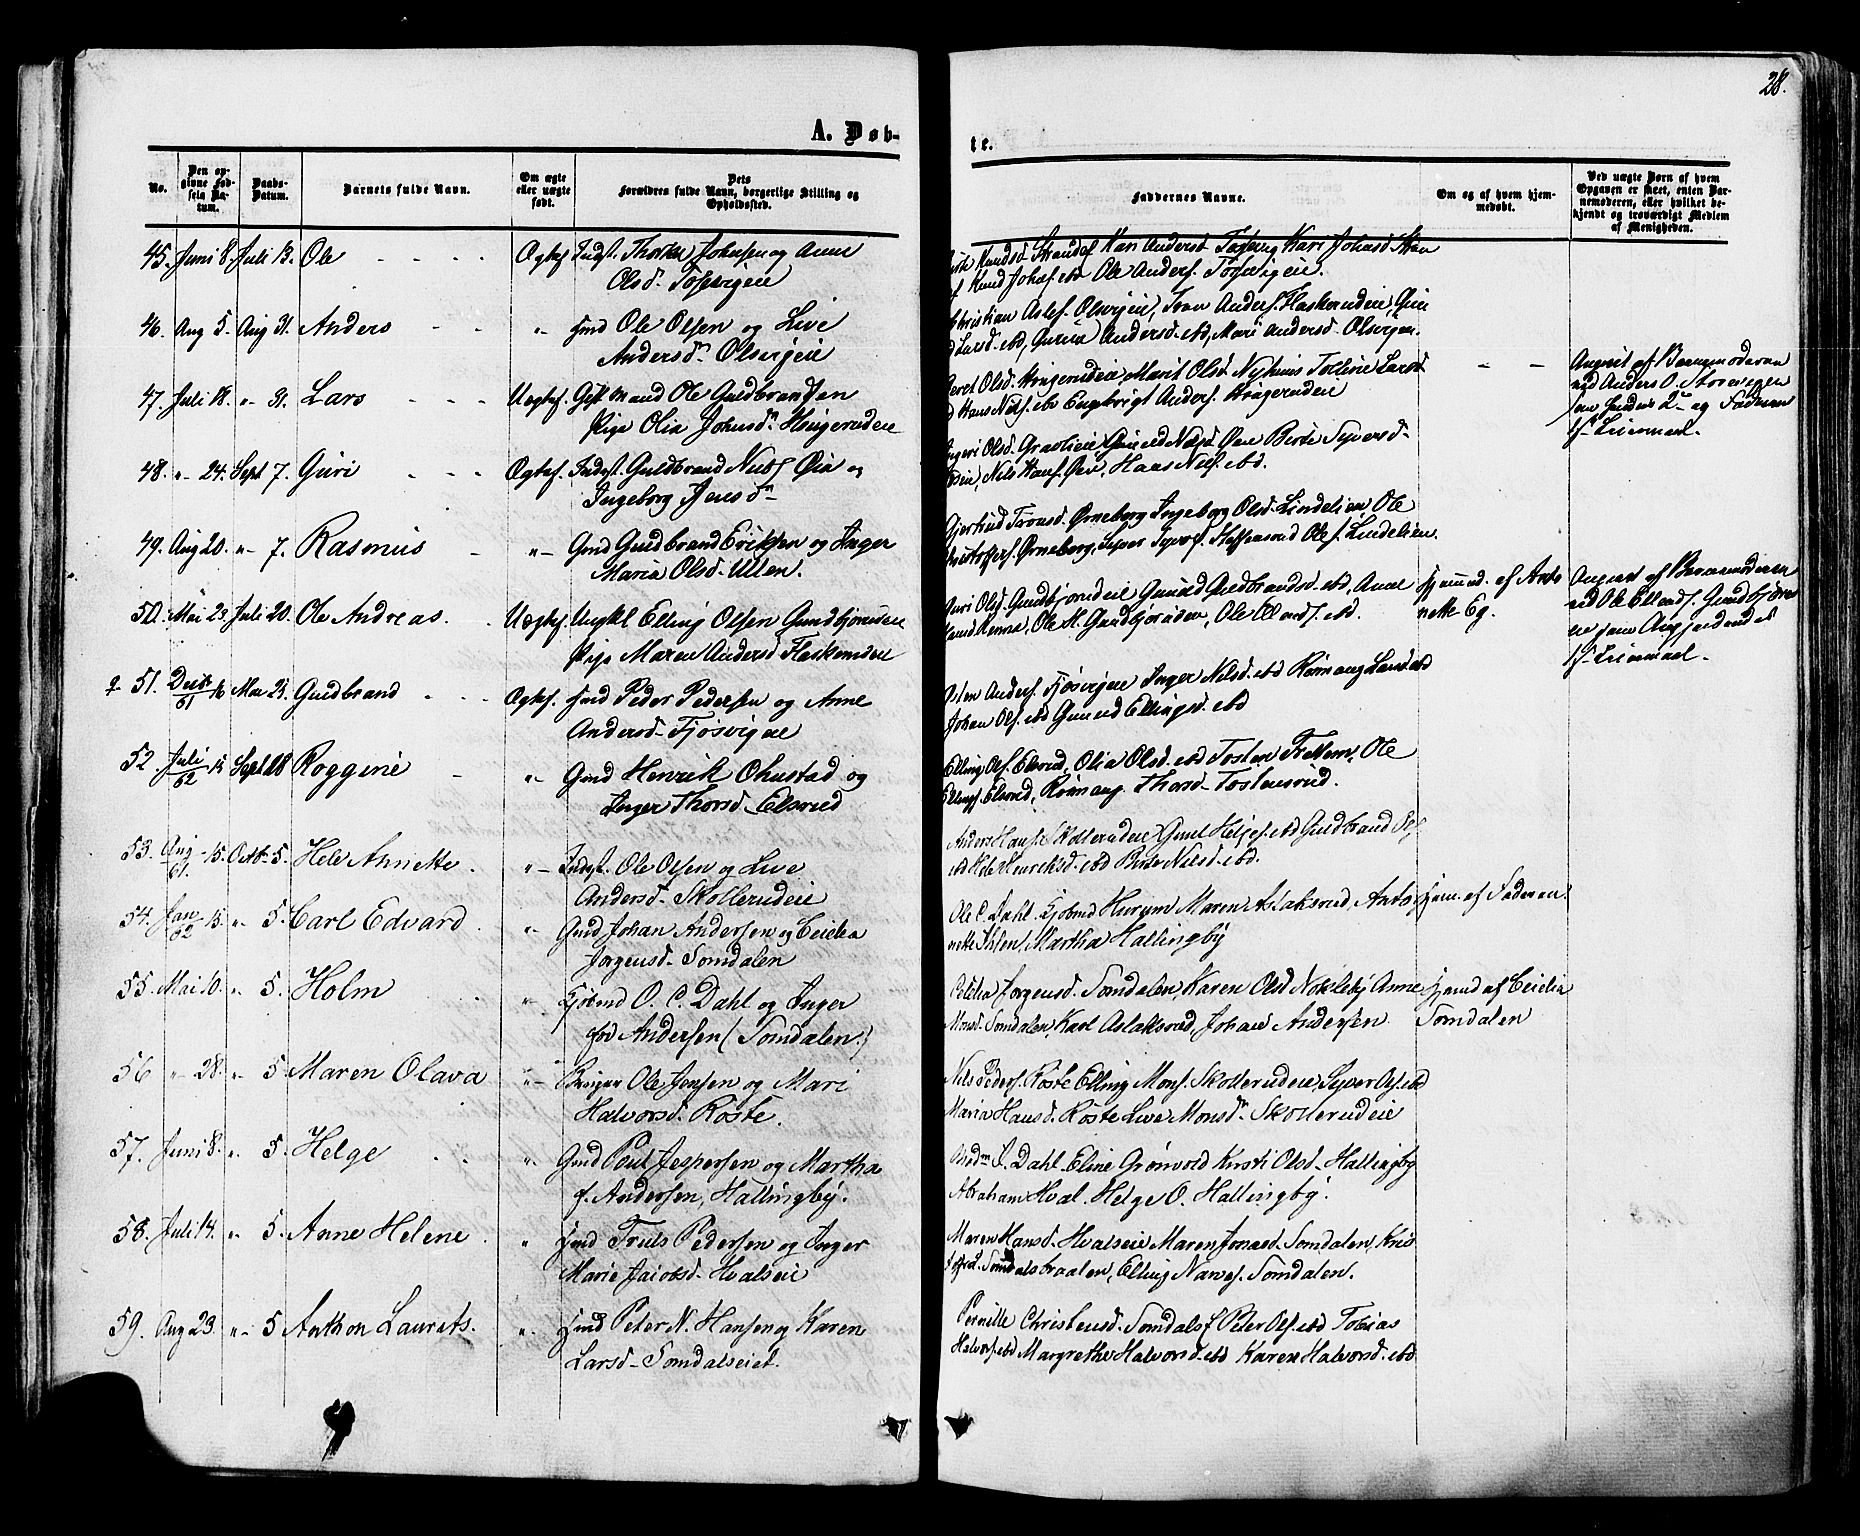 28.
A. Døb-
te.
No.
Den op-
givne Fød-
sels Da-
tum.
Daabs-
Datum.
Barnets fulde Navn.
Om ægte
eller uægte
født.
Dets
Forældres fulde Navn, borgerlige Stilling og
Opholdssted.
Faddernes Navne.
Om og af hvem hjem-
medøbt.
Ved uægte Børn af hvem
Opgaven er skeet, enten Bar-
nemoderen, eller hvilket be-
kjendt og troværdigt Medlem
af Menigheden.
45. Juni 8. Juli 13. Ole Ægtef. Indst. Johnsen og Anne
Olsd.
Knudsd. Strand Kari Andersd. Kari Johnsd.
Knud Johns. ibd Ole Anders.
46. Aug 5. Aug 31. Anders " Hmd Ole Olsen og Live
Andersd. Olsvigeie
Christian Aslefs. Olsvigeie, Iver Anders. Flaskerudeie,
Larsd. ibd, Andersd. ibd, Mari Andersd. Olsvigeie.
47. Juli 18. " 31. Lars Uægtef. Gift Mand Ole Guldbrandsen
Pige Olia Johnsd. Hringerudeie
Olsd. Hringerudeie Marit Olsd. Larsd
Hans Nils. ibd Engebrigt Anders. Hringerudeie
Angivet af Barnemoderen
ved Anders O.
som hendes 2det og Faderens
1ste Leiermaal.
48. " 24. Sept 7. Guri Ægtef. Indst. Guldbrand Niels. Øia og
Ingeborg Jensd.
Ingeri Olsd. Gunild Nilsd. Øia Berte Syversd.
Nils Hans. Øia, Hans Nils. ibd.
49. Aug 20. " 7. Rasmus " Gmd Guldbrand Eriksen og Inger
Maria Olsd. Ullen.
Gjertrud Tronsd. Ørneborg Ingeborg Olsd. Lindelien, Ole
Christoffers. Ørneborg, Syver Syvers. Steffensrud Ole S. Lindelien.
50. Mai 23. Juli 20. Ole Andreas. Uægtef. Ungkl Elling Olsen Gundbjørudeie
Pige Maren Andersd. Flaskerudeie
Guri Olsd. Gundbjørudeie Gunild Guldbrandsd. ibd,
Ole H. Gundbjøruden, Ole Ellends. ibd.
hjemmed. af Anto
nette Eg.
Angivet af Barnemoderen
ved Ole Ellends. Gundbjøru
eie som
1ste Leiermaal.
51. Decbr 16
61 Mai 29. Guldbrand Ægtef. Hmd Peder Pedersen og Anne
Andersd. Fjøsvigeie
Osten Anders. Fjøsvigeie Inger Nilsd. ibd
Johan Ols. ibd Gunild Ellingsd. ibd
52 Juli 15
62 Sept 28 Roggine " Gmd Henrik Ohustad og
Inger Thorsd. Elsrud
Elling Ols. Elsrud, Olia Olsd. ibd Tosten Ole
Ellings. Elsrud, Thorsd. Tostensrud.
53. Aug 15.
61. Octb. 5. Hele Annette " Indst. Ole Olsen og Live
Andersd. Skollerudeie
Anders Hans. Skollerudeie Helges. ibd Guldbrand
ibd Hele Henriksd. ibd Berte Nilsd. ibd.
54. Jan 15.
62 " 5. Carl Edvard " Gmd Johan Andersen og Ceicilia
Jørgensd. Somdalen
Ole C. Dahl. Kjøbmd Hurum Maren Aslaksrud, Anto
nette Ihlen, Martha Hallingby
hjem. af Faderen.
55. Mai 10. " 5. Holm " Kjøbmd O. C. Dahl og Inger
fød Andersen (Somdalen.)
Cecilia Jørgensd. Somdalen, Karen Olsd Nokleby Anne
Monsd. Somdalen, Karl Aslaksrud, Johan Andersen
hjemd af Ceicilia
Somdalen
56 " 28. " 5 Maren Olava " Bruger Ole Jensen og Mari
Halvorsd. Røste.
Nils Peders. Røste Elling Mons. Skollerudeie, Syver Ols. ibd
Maria Hansd. Røste Live Monsd. Skollerudeie
57. Juni 8. " 5. Helge " Gmd Poul Jespersen og Martha
f. Andersen, Hallingby.
Dahl. Eline Grønvold Kirsti Olsd. Hallingby
Abraham Hval. Helge O. Hallingby.
58. Juli 14. " 5. Anne Helene. " Hmd Truls Pedersen og Inger
Marie Jacobsd. Hvalseie
Maren Hansd. Hvalseie Maren Jonasd. Somdalen, Kris
Somdalsbraaten, Elling Narves. Somdalen.
59. Aug 23. " 5 Anthon Laurits. " Hmd Peter N. Hansen og Karen
Larsd. Somdalseiet.
Pernille Christensd. Somdals Peter Ols. ibd Tobias
Halvors. ibd Margrethe Halvorsd. ibd Karen Halvorsd. ibd